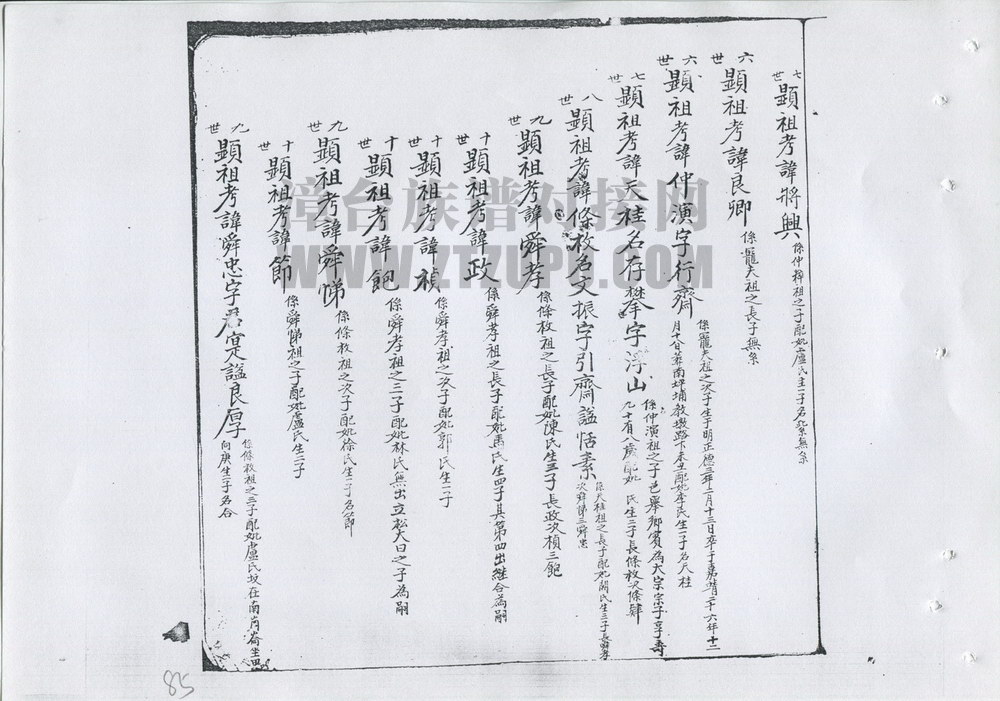 七世 顯祖考諱將興 係仲梓祖之子配妣盧氏生一子名 無系
六世 顯祖考諱良卿 係寵夫祖之長子無系
六世 顯祖考諱仲演字行齋 係寵夫祖之次子生于明正德三年二月十三日卒于嘉靖二十六年十二
月十日葬南坪埔 墩路下 配妣李氏生一子名天桂
七世 顯祖考諱天桂名存攀字浮山 係仲演祖之子邑舉鄉賓為大宗宗子享壽
九十有八歲配妣 氏生二子長條枚次條肄
八世 顯祖考諱條枚名文振字引齋謚恬素 係天桂祖之長子配妣 氏生三子長舜孝
次舜悌三舜忠
九世 顯祖考諱舜孝 係條枚祖之長子配妣陳氏生三子長政次禎三飽
十世 顯祖考諱政 係舜孝祖之長子配妣馬氏生四子其第四出繼合為嗣
十世 顯祖考諱禎 係舜孝祖之次子配妣郭氏生一子
十世 顯祖考諱飽 係舜孝祖之三子配妣林氏無出立松大日之子為嗣
九世 顯祖考諱舜悌 係條枚祖之次子配妣徐氏生一子名節
十世 顯祖考諱節 係舜悌祖之子配妣盧氏生二子
九世 顯祖考諱舜忠字君寔謚良厚 係條枚祖之三子配妣盧氏坟在南 崙坐甲
向庚生一子名合
漳台族谱对接网
WWW.ZTZUPU.COM
85